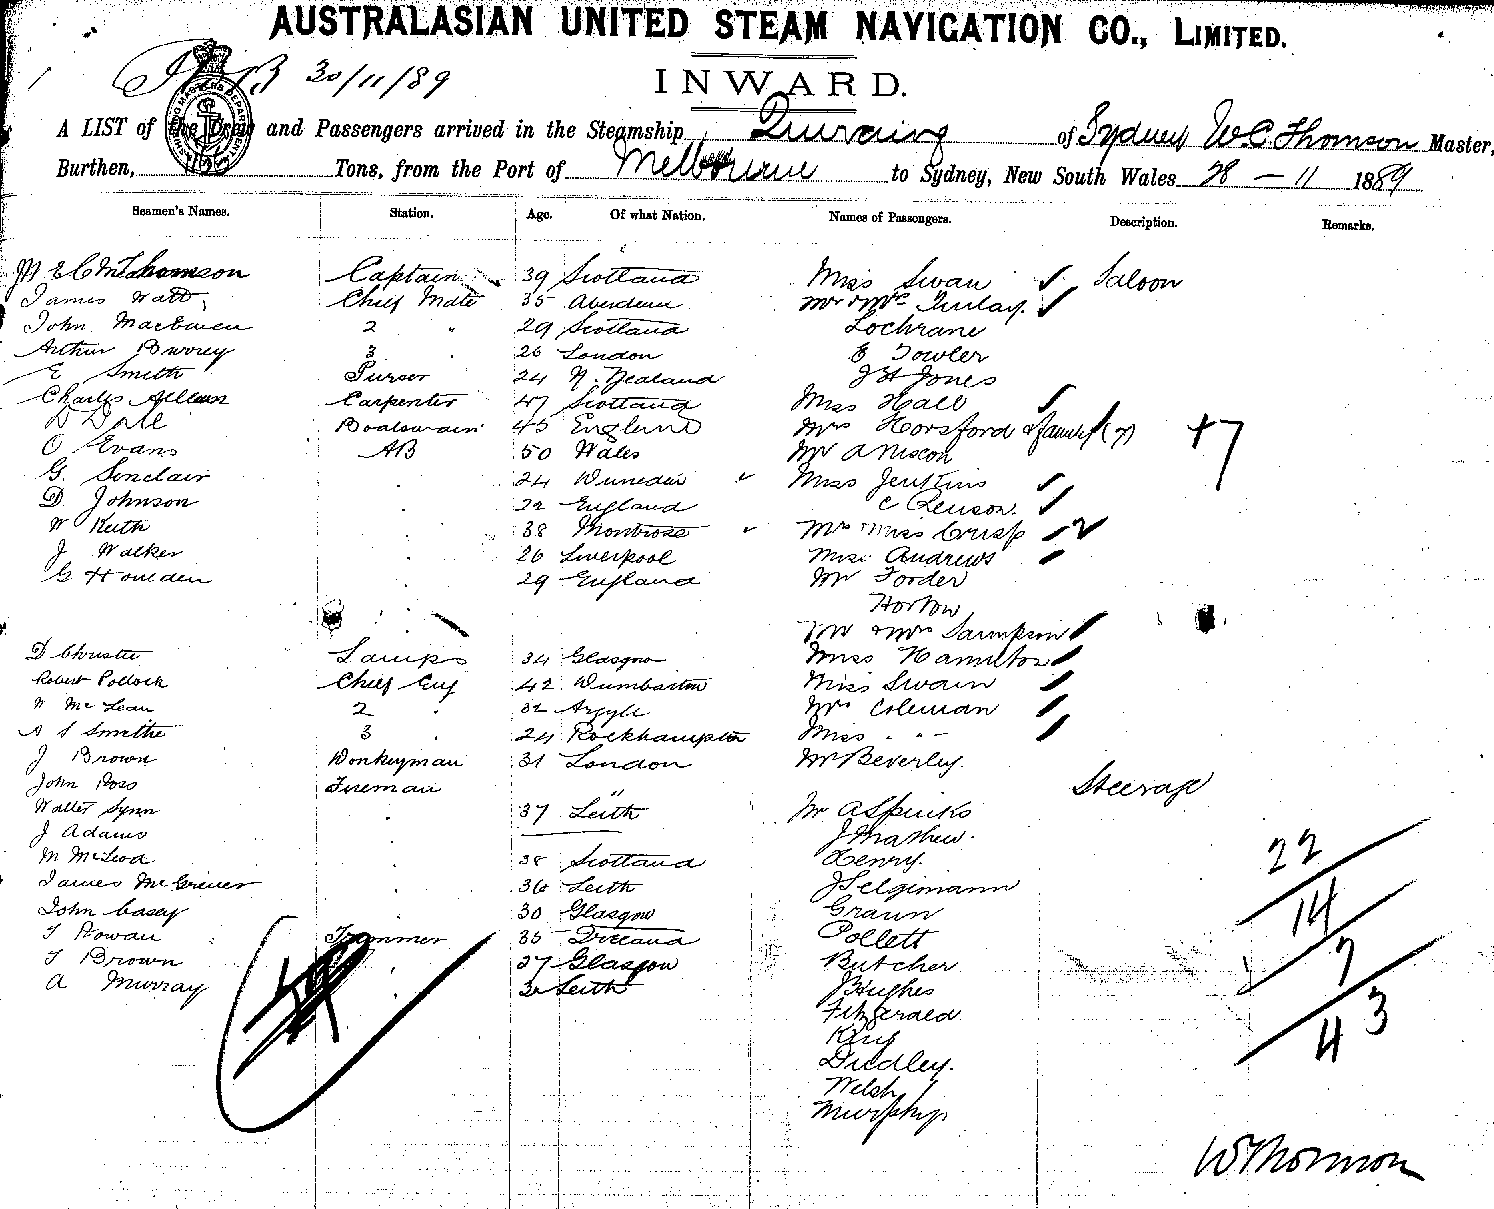 AUSTRALASIAN UNITED STEAM NAVIGATION CO., LIMITED.
30/11/89
INWARD.
A LIST of the Crew and Passengers arrived in the Steamship Quiraing of Sydney W.C. Thomson Master,
Burthen, Tons, from the Port of Melbourne to Sydney, New South Wales 28 - 11 1889
Seamen's Names. Station. Age. Of what Nation. Names of Passengers. Description. Remarks.
Thomson Captain 39 Scotland Miss Swan Saloon
James Watt Chief Mate 35 Aberdeen Mr & Mrs
John MacEwen 2 " 29 Scotland Lochrane
Arthur 3 26 London E Fowler
E Smith Purser 24 N. Zealand J H Jones
Charles Allean Carpenter 47 Scotland Miss Hall
D Dall Boatswain 45 England Mrs Horsford & family (7) +7
O Evans AB 50 Wales Mr A Nixon
G. Sinclair 24 Dunedin Miss Jenkins
D. Johnson 22 England C
W Keith 38 Montrose Mrs Miss Crisp 2
J Walker 26 Liverpool Miss Andrews
G Howden 29 England Mr Forder
Horton
Mr & Mrs Saumpson
D Christie Lamps 34 Glasgow Miss Hamilton
Robert Pollock Chief Eng 42 Dumbarton Miss Swain
W McLean 2 " 32 Argyle Mrs Coleman
A S Smithe 3 " 24 Rockhampton Miss " "
J Brown Donkeyman 31 London Mr Beverley
John Ross Fireman " Steerage
Walter Synn 37 Leith Mr A Spinks
J Adams J Mathew.
M McLeod 38 Scotland Henry. 22
James McGriver 36 Leith J Selgimann
John Casey 30 Glasgow Graun 14
T Rowan Trimmer 35 Ireland Pollett
T Brown 27 Glasgow Butcher 7
A Murray Leith J Hughes
Fitzgerald 43
King
Dudley.
Welsh
Murphy
W Thomson